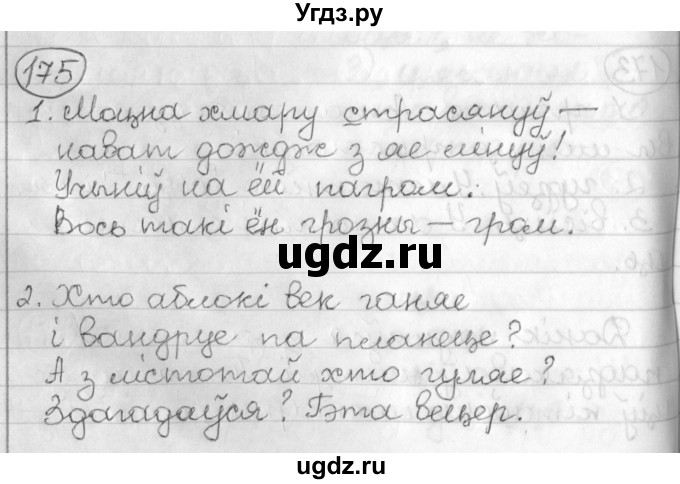 Угдз.ру
175
1. Моцна хмару страсянуў —
нават дождж з яе лінуў!
Учыніў на ёй пагром.
Вось такі ён грозны — гром.
ugdz.ru
2. Хто аблокі век ганяе
і вандруе па планеце?
А з лістотай хто гуляе?
Здагадаўся? Гэта вецер.
ugdz.ru